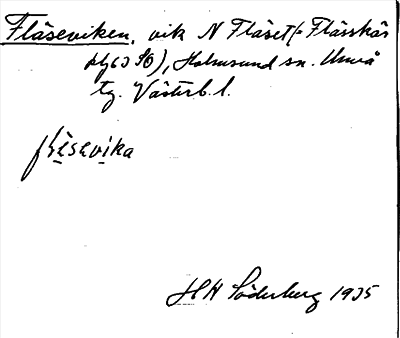 Fläseviken, vik N Fläset (= Flässkär
), Holmsund sn. Umeå
tg. Västerb. l.
flèsavika
HH Söderberg 1935